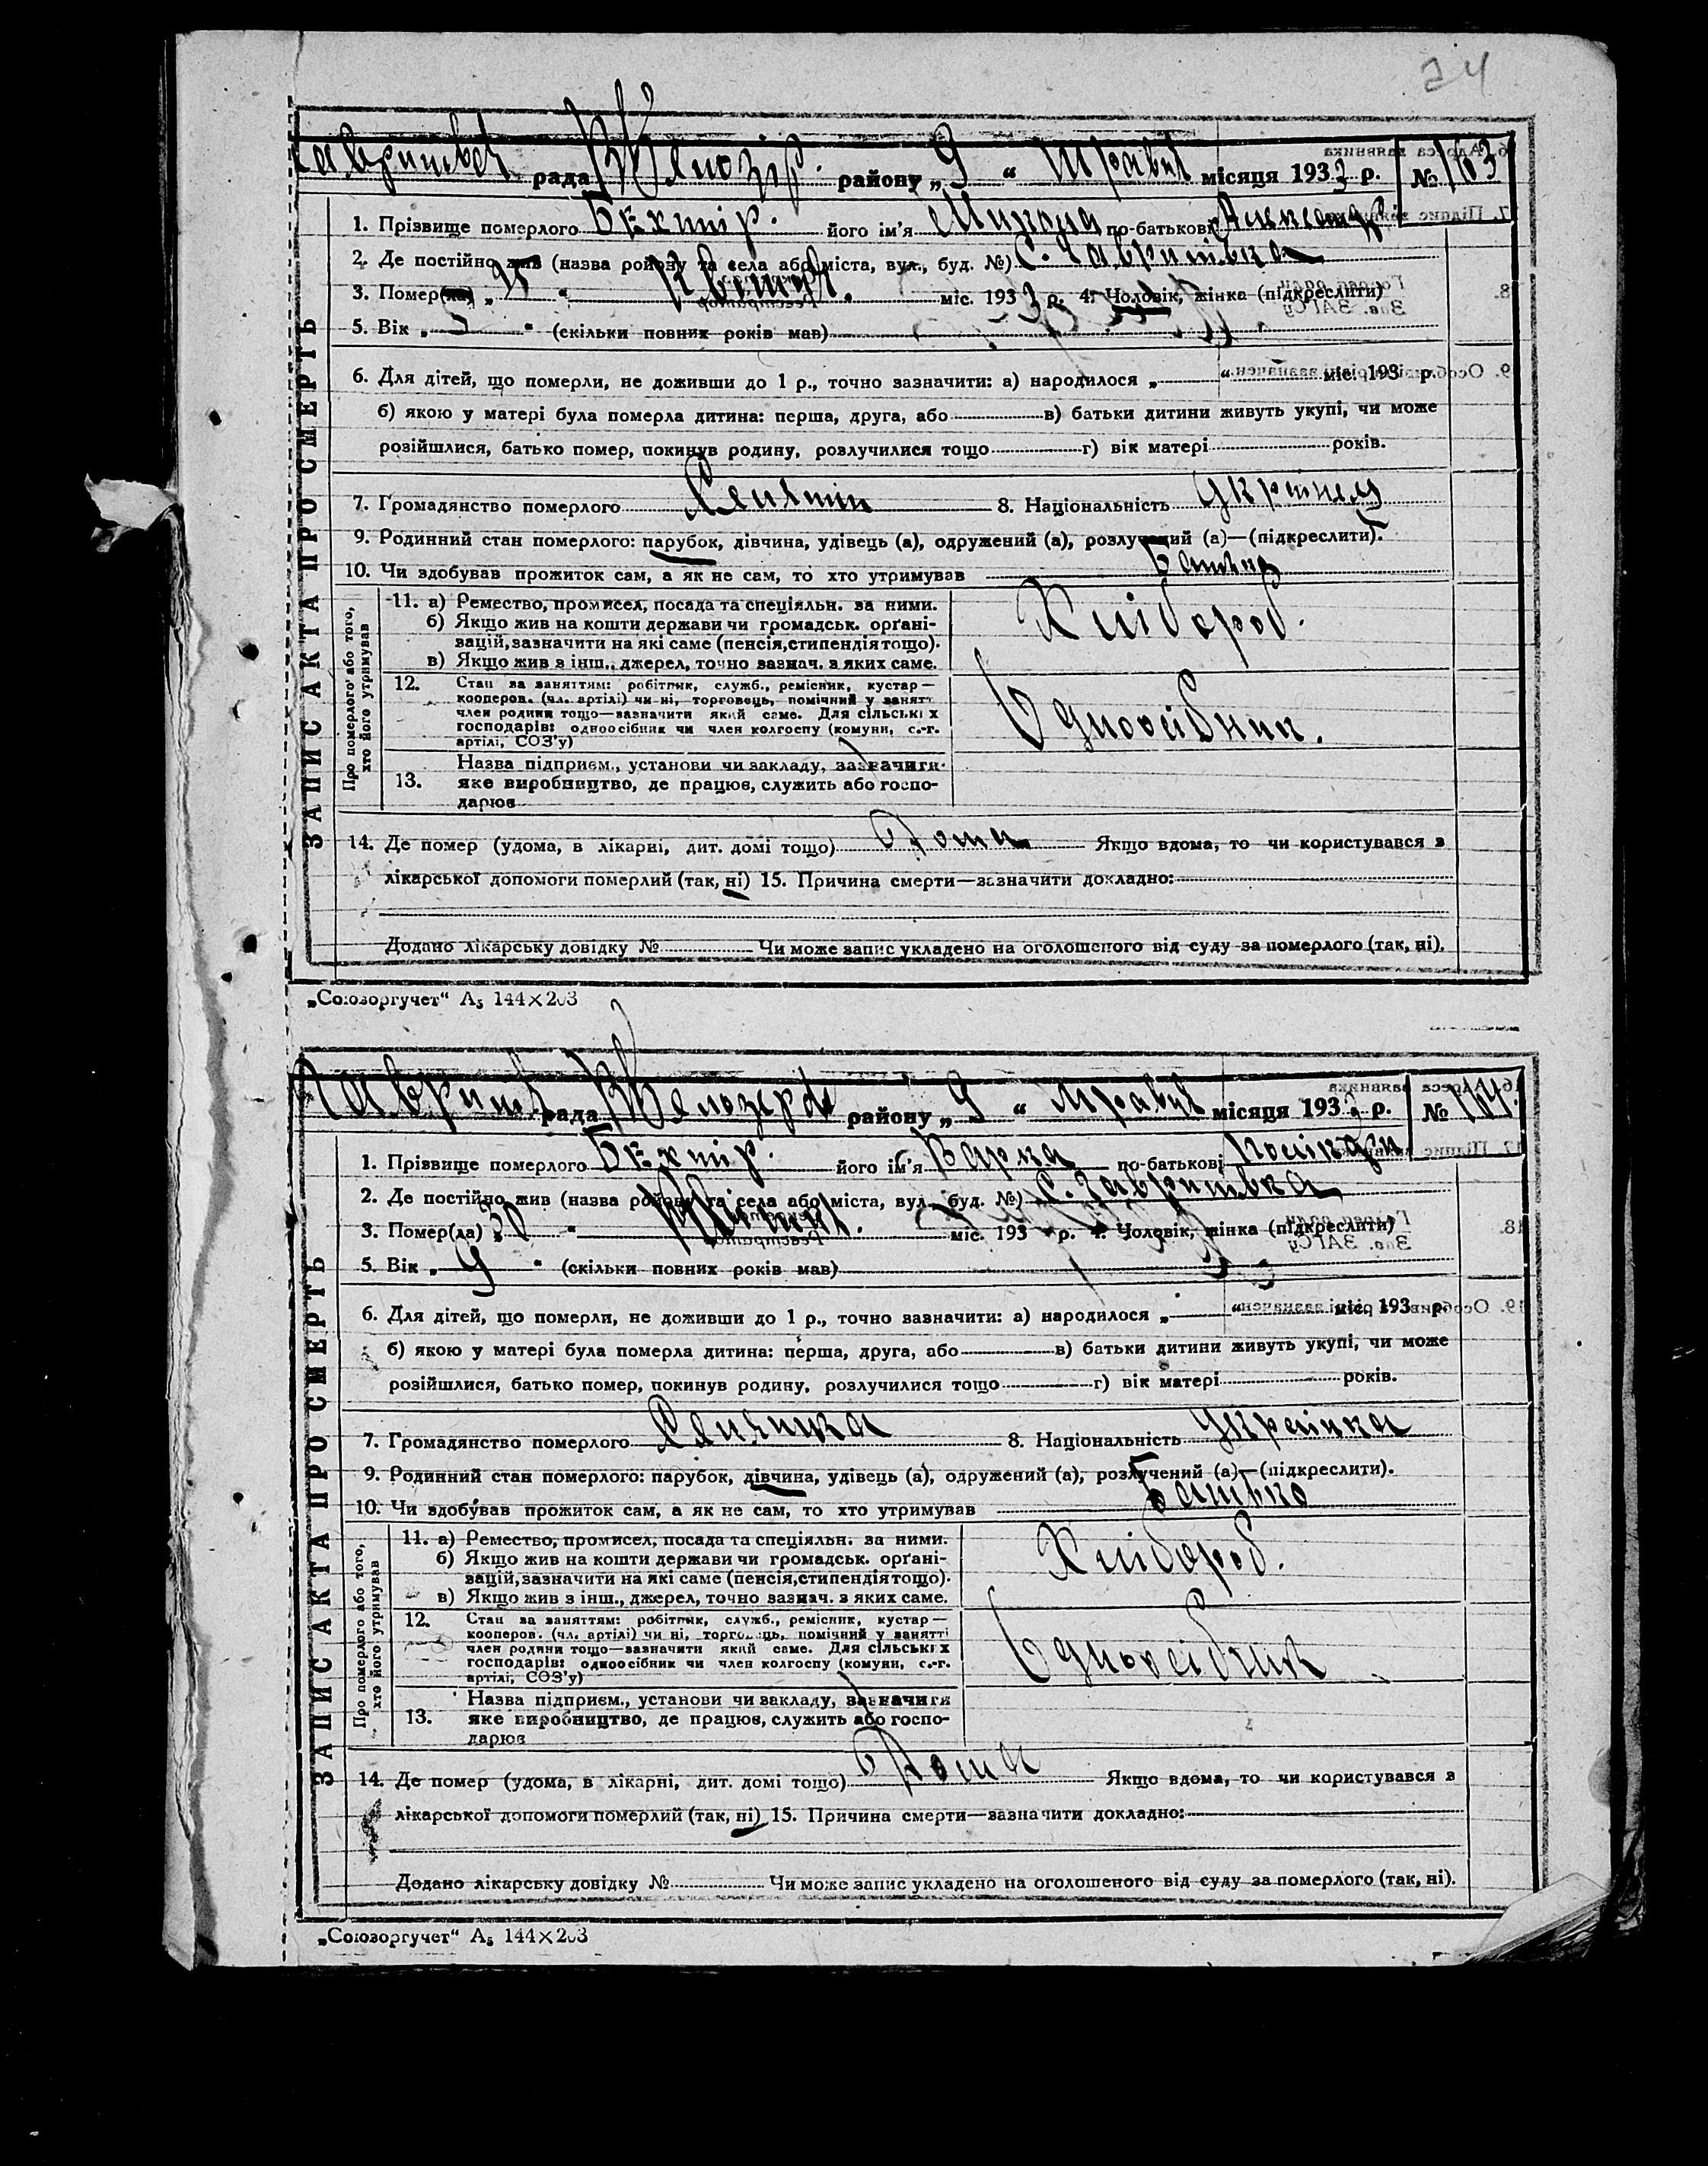 24
рада району „ 9 “ травня місяця 1933 р. № 163
1. Прізвище померлого Бехтір. його ім'я Микола по-батькові
2. Де постійно жив (назва району та села або міста, вул., буд. №) С. Гавритівка
3. Помер(ла) „ “ Квітня. міс. 1933 р. 4. Чоловік, жінка (підкреслити)
5. Вік „ 5 “ (скільки повних років мав)
6. Для дітей, що померли, не доживши до 1 р., точно зазначити: а) народилося „ “ міс. 193 р.
б) якою у матері була померла дитина: перша, друга, або в) батьки дитини живуть укупі, чи може
розійшлися, батько помер, покинув родину, розлучилися тощо г) вік матері років.
7. Громадянство померлого Селянин 8. Національність
9. Родинний стан померлого: парубок, дівчина, удівець (а), одружений (а), розлучений (а)—(підкреслити).
10. Чи здобував прожиток сам, а як не сам, то хто утримував Батько
ЗАПИС АКТА ПРО СМЕРТЬ
Про померлого або того, хто його утримував
11. а) Ремество, промисел, посада та спеціяльн. за ними.
б) Якщо жив на кошти держави чи громадськ. орґані-
зацій, зазначити на які саме (пенсія, стипендія тощо).
в) Якщо жив з інш., джерел, точно зазнач. з яких саме.
Хлібороб.
12. Стан за заняттям: робітник, служб., ремісник, кустар—
кооперов. (чл. артілі) чи ні, торговець, помічний у занятті
член родини тощо—зазначити який саме. Для сільських
господарів: одноосібник чи член колгоспу (комуни, с.-г.
артілі, СОЗ'у)
Одноосібник.
13. Назва підприєм., установи чи закладу, зазначити
яке виробництво, де працює, служить або госпо-
дарює
14. Де помер (удома, в лікарні, дит. домі тощо) Дома Якщо вдома, то чи користувався з
лікарської допомоги померлий (так, ні) 15. Причина смерти—зазначити докладно:
Додано лікарську довідку № Чи може запис укладено на оголошеного від суду за померлого (так, ні).
„Союзоргучет“ А5 144×203
рада району „ 9 “ травня місяця 193 р. №
1. Прізвище померлого Бехтір. його ім'я Варка по-батькові
2. Де постійно жив (назва району та села або міста, вул., буд. №) С. Гавритівка
3. Помер(ла) 30 “ міс. 193 р. 4. Чоловік, жінка (підкреслити)
5. Вік „ 9 “ (скільки повних років мав)
6. Для дітей, що померли, не доживши до 1 р., точно зазначити: а) народилося „ “ міс. 193 р.
б) якою у матері була померла дитина: перша, друга, або в) батьки дитини живуть укупі, чи може
розійшлися, батько помер, покинув родину, розлучилися тощо г) вік матері років.
7. Громадянство померлого Селянка 8. Національність Українка
9. Родинний стан померлого: парубок, дівчина, удівець (а), одружений (а), розлучений (а)—(підкреслити).
10. Чи здобував прожиток сам, а як не сам, то хто утримував Батько
ЗАПИС АКТА ПРО СМЕРТЬ
Про померлого або того, хто його утримував
11. а) Ремество, промисел, посада та спеціяльн. за ними.
б) Якщо жив на кошти держави чи громадськ. орґані-
зацій, зазначити на які саме (пенсія, стипендія тощо).
в) Якщо жив з інш., джерел, точно зазнач. з яких саме.
Хлібороб.
12. Стан за заняттям: робітник, служб., ремісник, кустар—
кооперов. (чл. артілі) чи ні, торговець, помічний у занятті
член родини тощо—зазначити який саме. Для сільських
господарів: одноосібник чи член колгоспу (комуни, с.-г.
артілі, СОЗ'у)
Одноосібник
13. Назва підприєм., установи чи закладу, зазначити
яке виробництво, де працює, служить або госпо-
дарює
14. Де помер (удома, в лікарні, дит. домі тощо) Дома Якщо вдома, то чи користувався з
лікарської допомоги померлий (так, ні) 15. Причина смерти—зазначити докладно:
Додано лікарську довідку № Чи може запис укладено на оголошеного від суду за померлого (так, ні).
„Союзоргучет“ А5 144×203